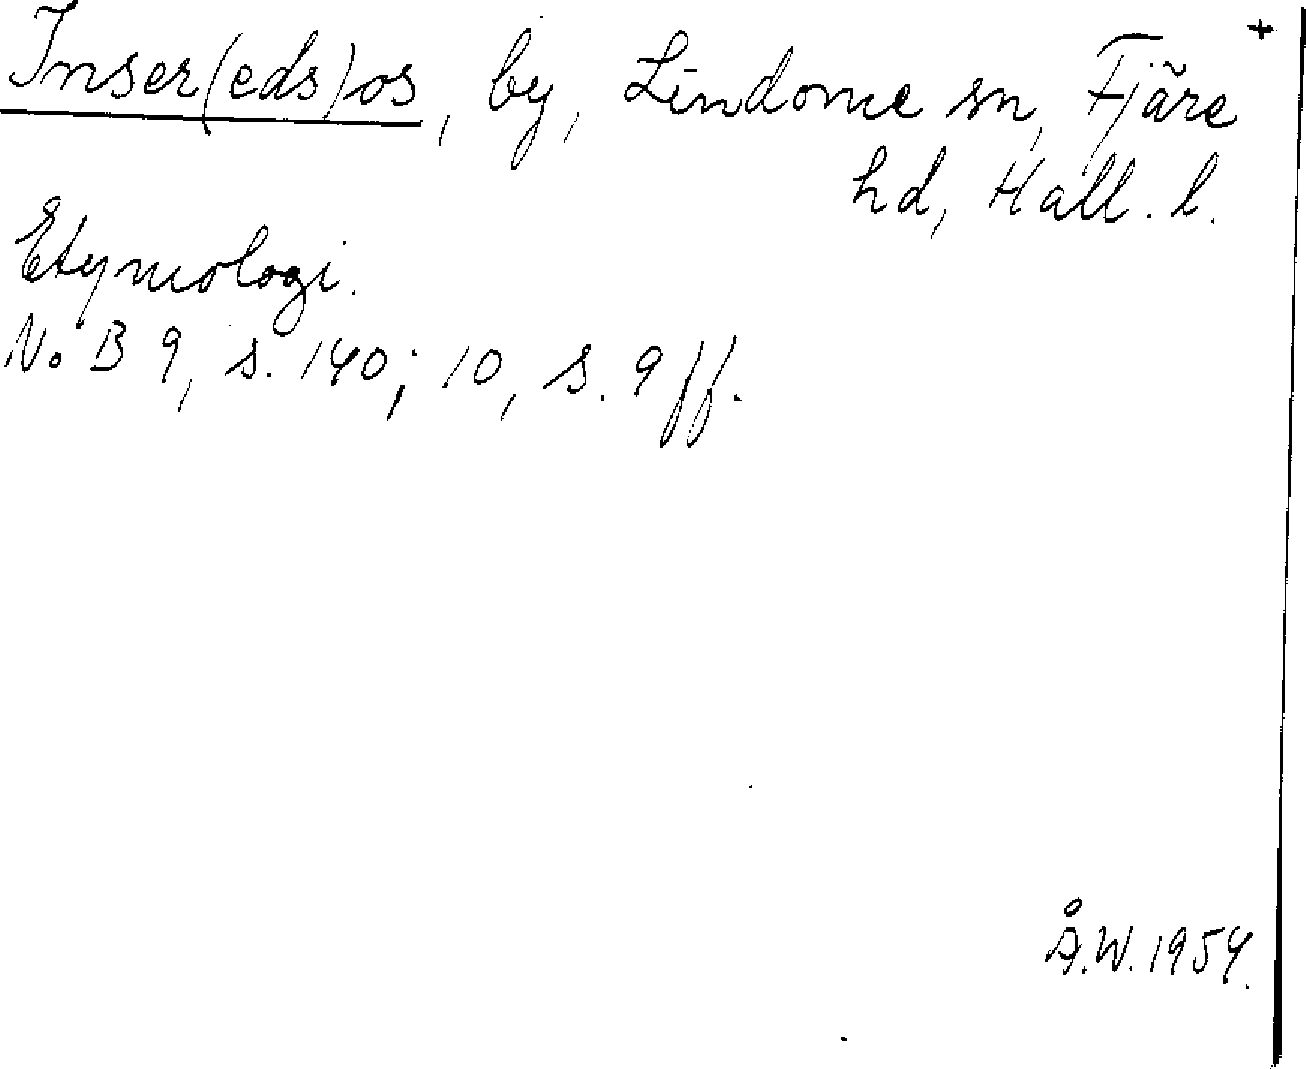 +
Inser(eds)os, by, Lindome sn, Fjäre
hd, Hall. l.
Etymologi.
NoB 9, s. 140; 10, s. 9 ff.
Å.W. 1954.